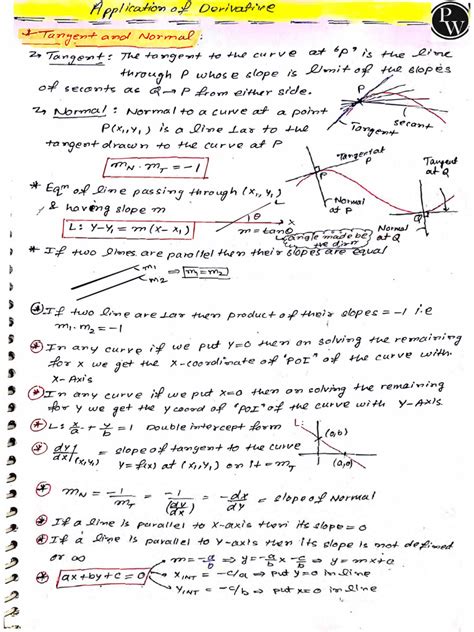 Application of Derivative
P
W
* Tangent and Normal :
Tangent : The tangent to the curve at "P" is the line
through P whose slope is limit of the slopes
of secants as Q→P from either side.
P
Tangent
secant
Normal : Normal to a curve at a point
P(x₁,y₁) is a line ⊥ar to the
tangent drawn to the curve at P
m_N . m_T = -1
Tangent at P
Tangent at Q
P
Normal at P
Q
Normal at Q
* Eqⁿ of line passing through (x₁, y₁)
& having slope m
L: y-y₁ = m(x-x₁)
θ
x
m = tanθ
angle made by the dirⁿ
* If two lines are parallel then their slopes are equal
m₁
m₂
⇒ m₁=m₂
* If two line are ⊥ar then product of their slopes = -1 i.e
m₁.m₂ = -1
* In any curve if we put y=0 then on solving the remaining
for x we get the x-coordinate of "POI" of the curve with
x-Axis
* In any curve if we put x=0 then on solving the remaining
for y we get the y coord of "POI" of the curve with Y-Axis
* L: x/a + y/b = 1 Double intercept form
L:
(0,b)
(a,0)
* dy/dx](x₁,y₁) = slope of tangent to the curve
y=f(x) at (x₁,y₁) on it = m_T
* m_N = -1/m_T = -1/(dy/dx) = -dx/dy = slope of Normal
* If a line is parallel to x-axis then its slope = 0
* If a line is parallel to y-axis then its slope is not defined
or ∞
* ax+by+c=0
m = -a/b ⇒ y = -a/b x - c/b ⇒ y = mx+a
x_INT = -c/a ⇒ put y=0 in line
y_INT = -c/b ⇒ put x=0 in line